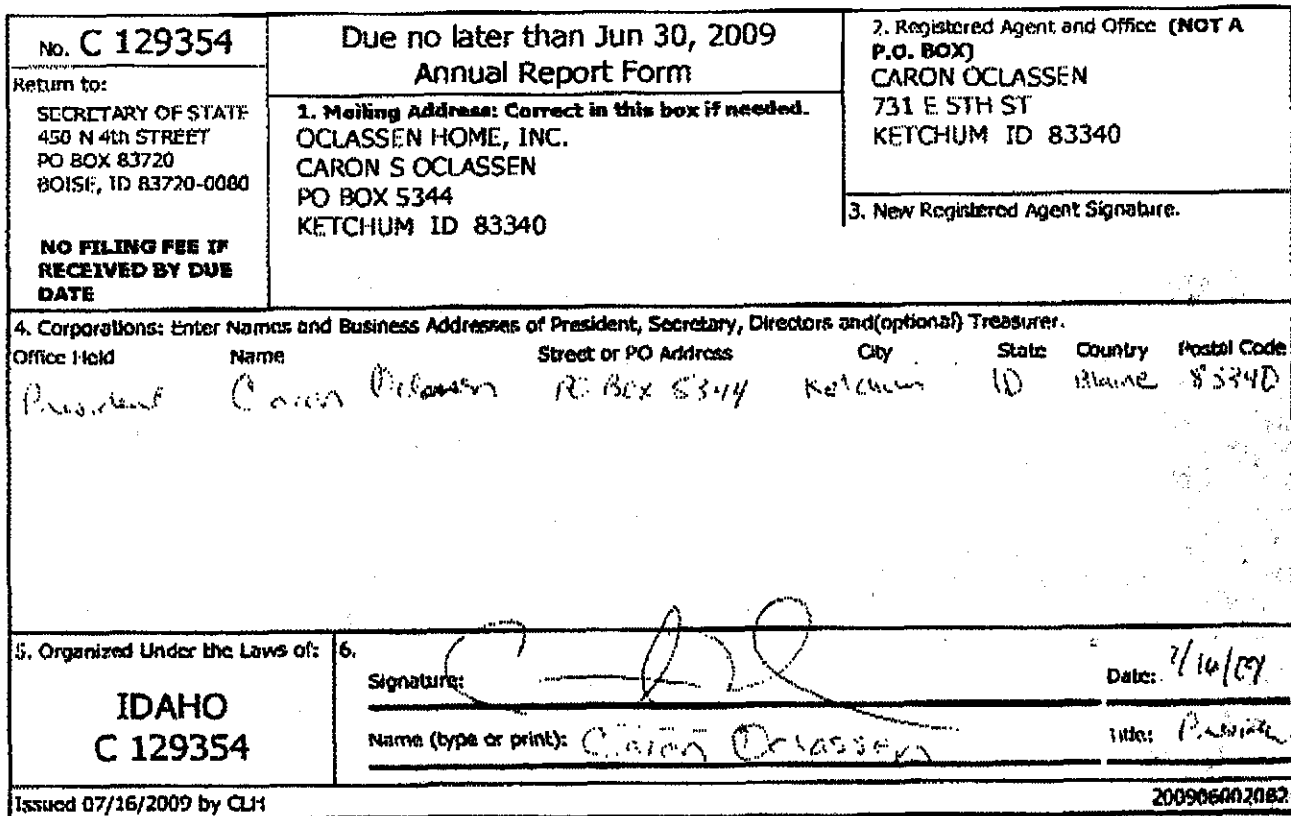 No. C 129354
Return to:
SECRETARY OF STATE
450 N 4th STREET
PO BOX 83720
BOISE, ID 83720-0080
NO FILING FEE IF
RECEIVED BY DUE
DATE
Due no later than Jun 30, 2009
Annual Report Form
1. Mailing Address: Correct in this box if needed.
OCLASSEN HOME, INC.
CARON S OCLASSEN
PO BOX 5344
KETCHUM ID 83340
2. Registered Agent and Office (NOT A
P.O. BOX)
CARON OCLASSEN
731 E 5TH ST
KETCHUM ID 83340
3. New Registered Agent Signature.
4. Corporations: Enter Names and Business Addresses of President, Secretary, Directors and(optional) Treasurer.
Office Held Name Street or PO Address City State Country Postal Code
President Caron Oclassen PO Box 5344 Ketchum ID Blaine 83340
5. Organized Under the Laws of:
IDAHO
C 129354
6.
Signature:
Date: 7/16/09
Name (type or print): Caron Oclassen
Title: President
Issued 07/16/2009 by CLH
200906002082